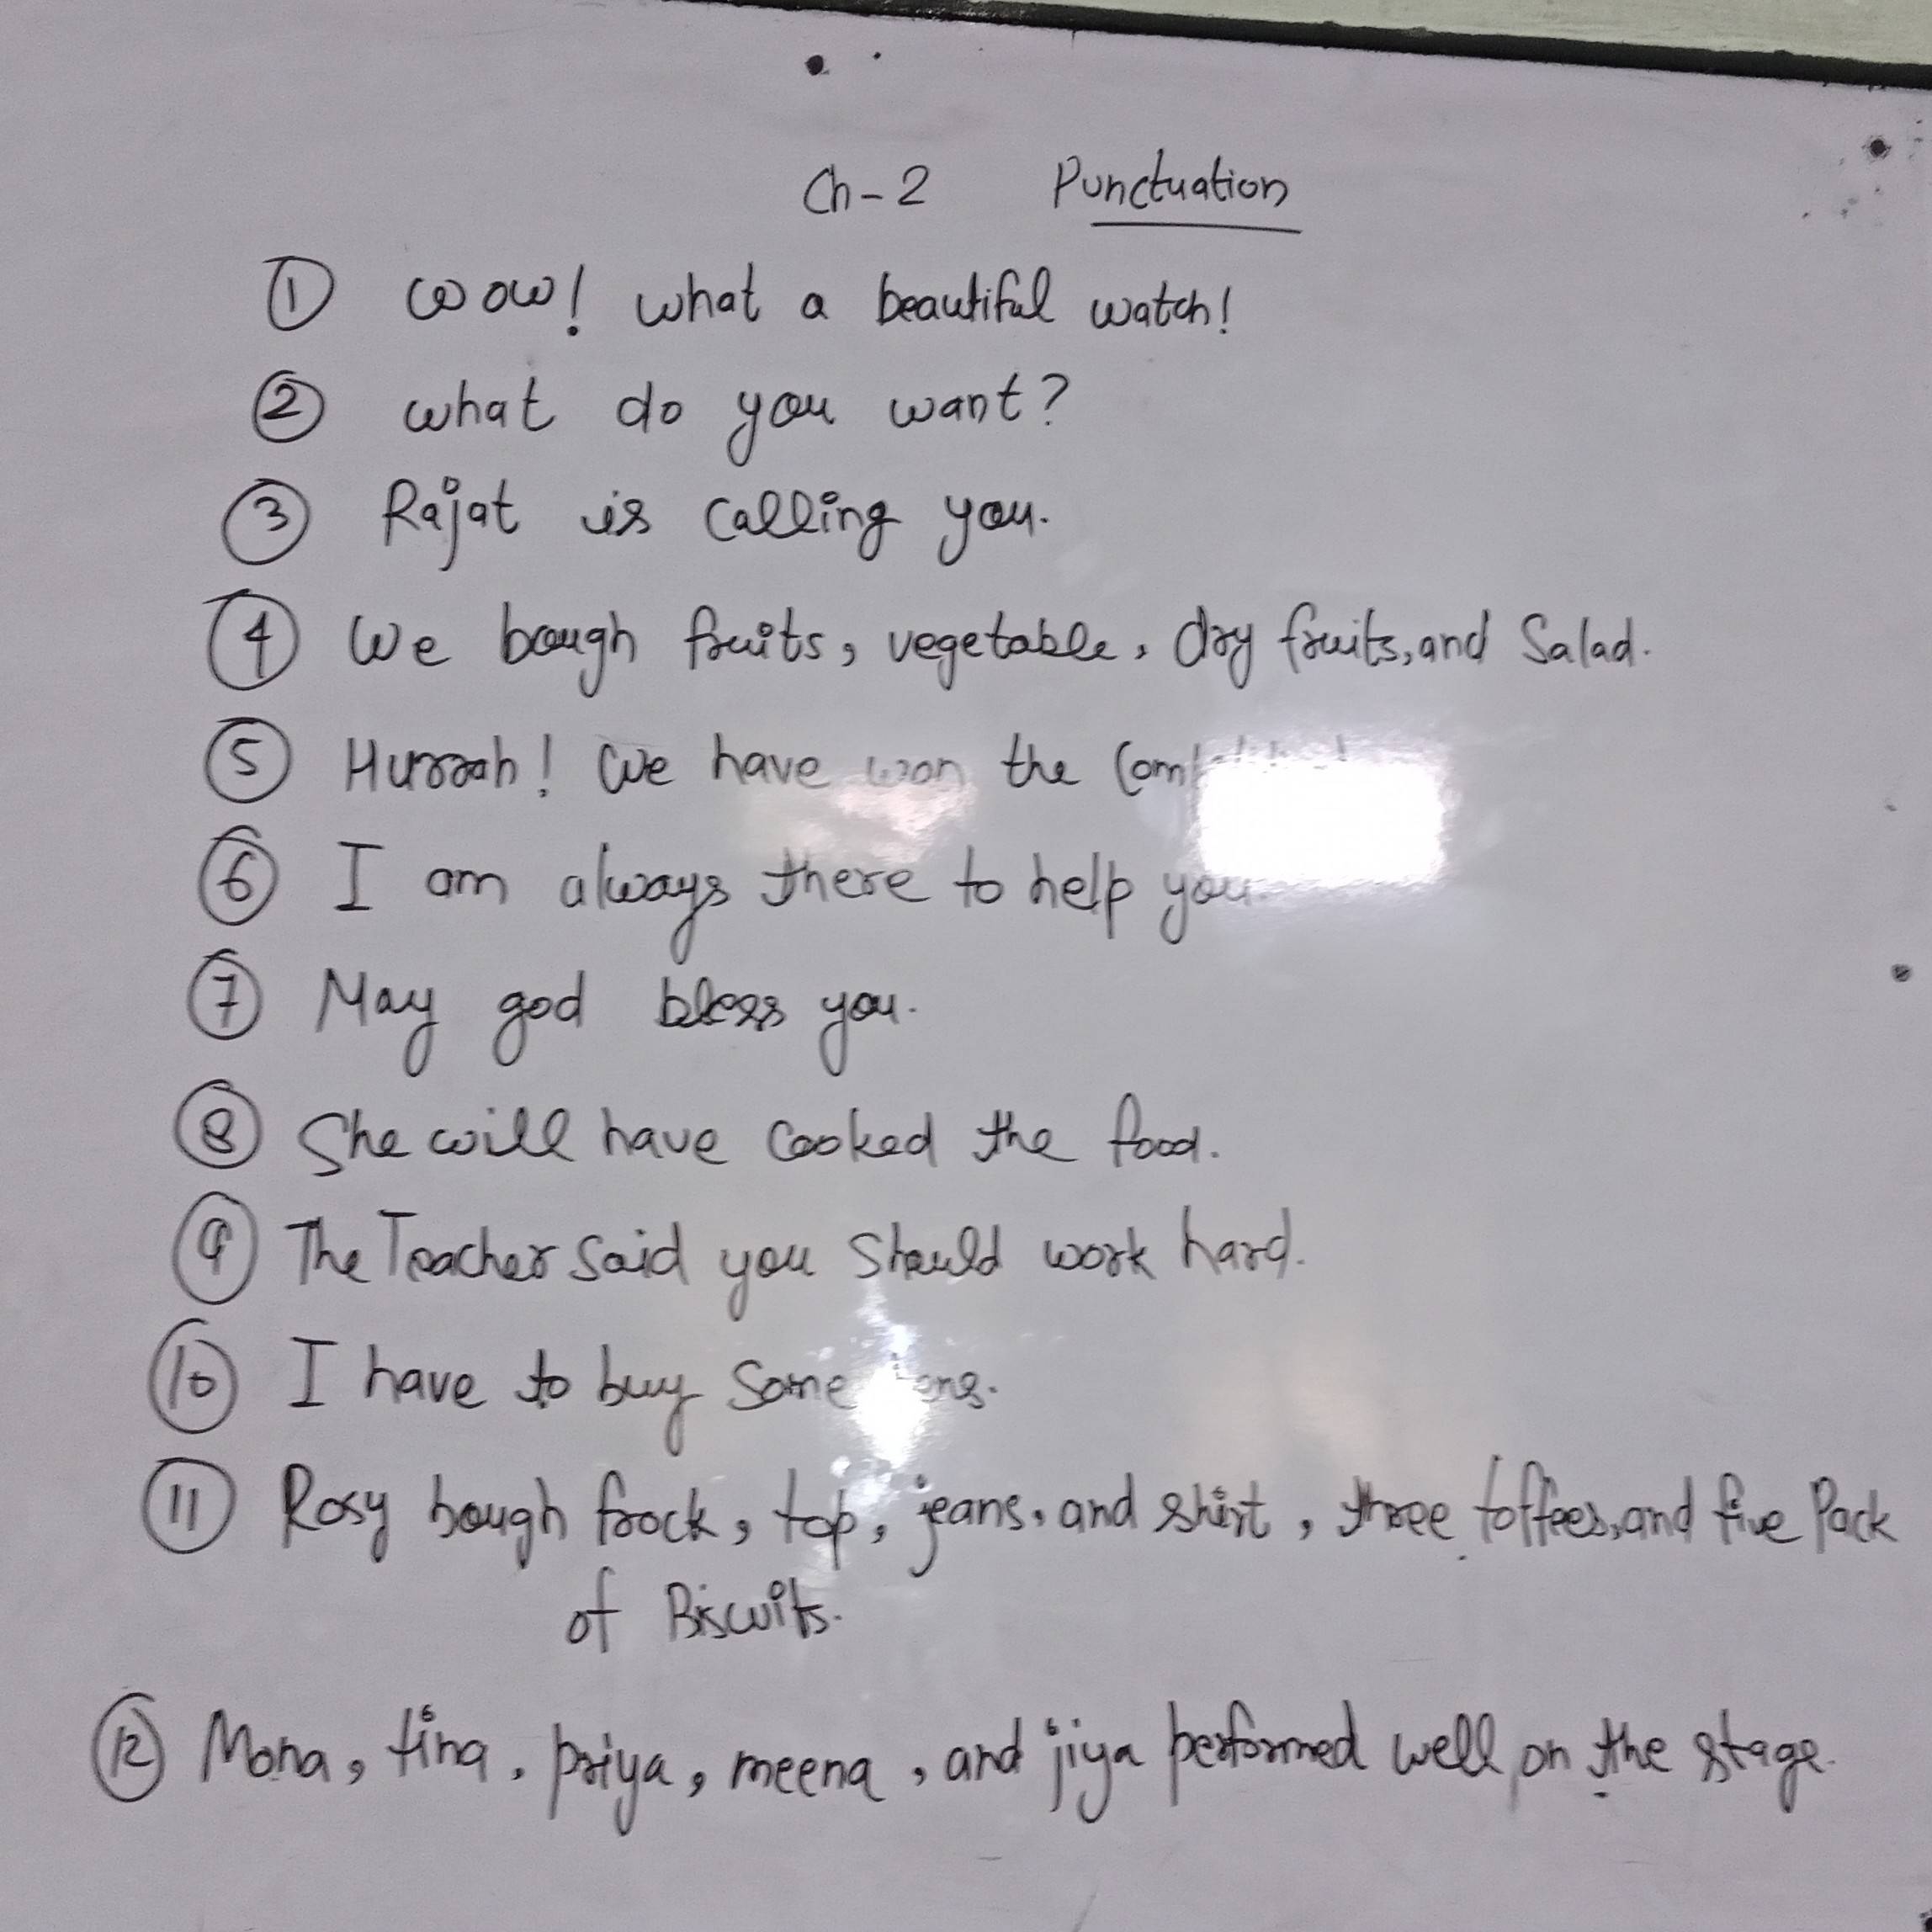 Ch-2 Punctuation
① Wow! what a beautiful watch!
② what do you want?
③ Rajat is calling you.
④ We bough fruits, vegetable, dry fruits, and Salad.
⑤ Hurrah! We have won the
⑥ I am always there to help you.
⑦ May god bless you.
⑧ She will have cooked the food.
⑨ The Teacher said you should work hard.
⑩ I have to buy some
⑪ Rosy bough frock, top, jeans, and shirt, three toffees, and five Pack
of Biscuits.
⑫ Mona, tina, priya, meena, and jiya performed well on the stage.